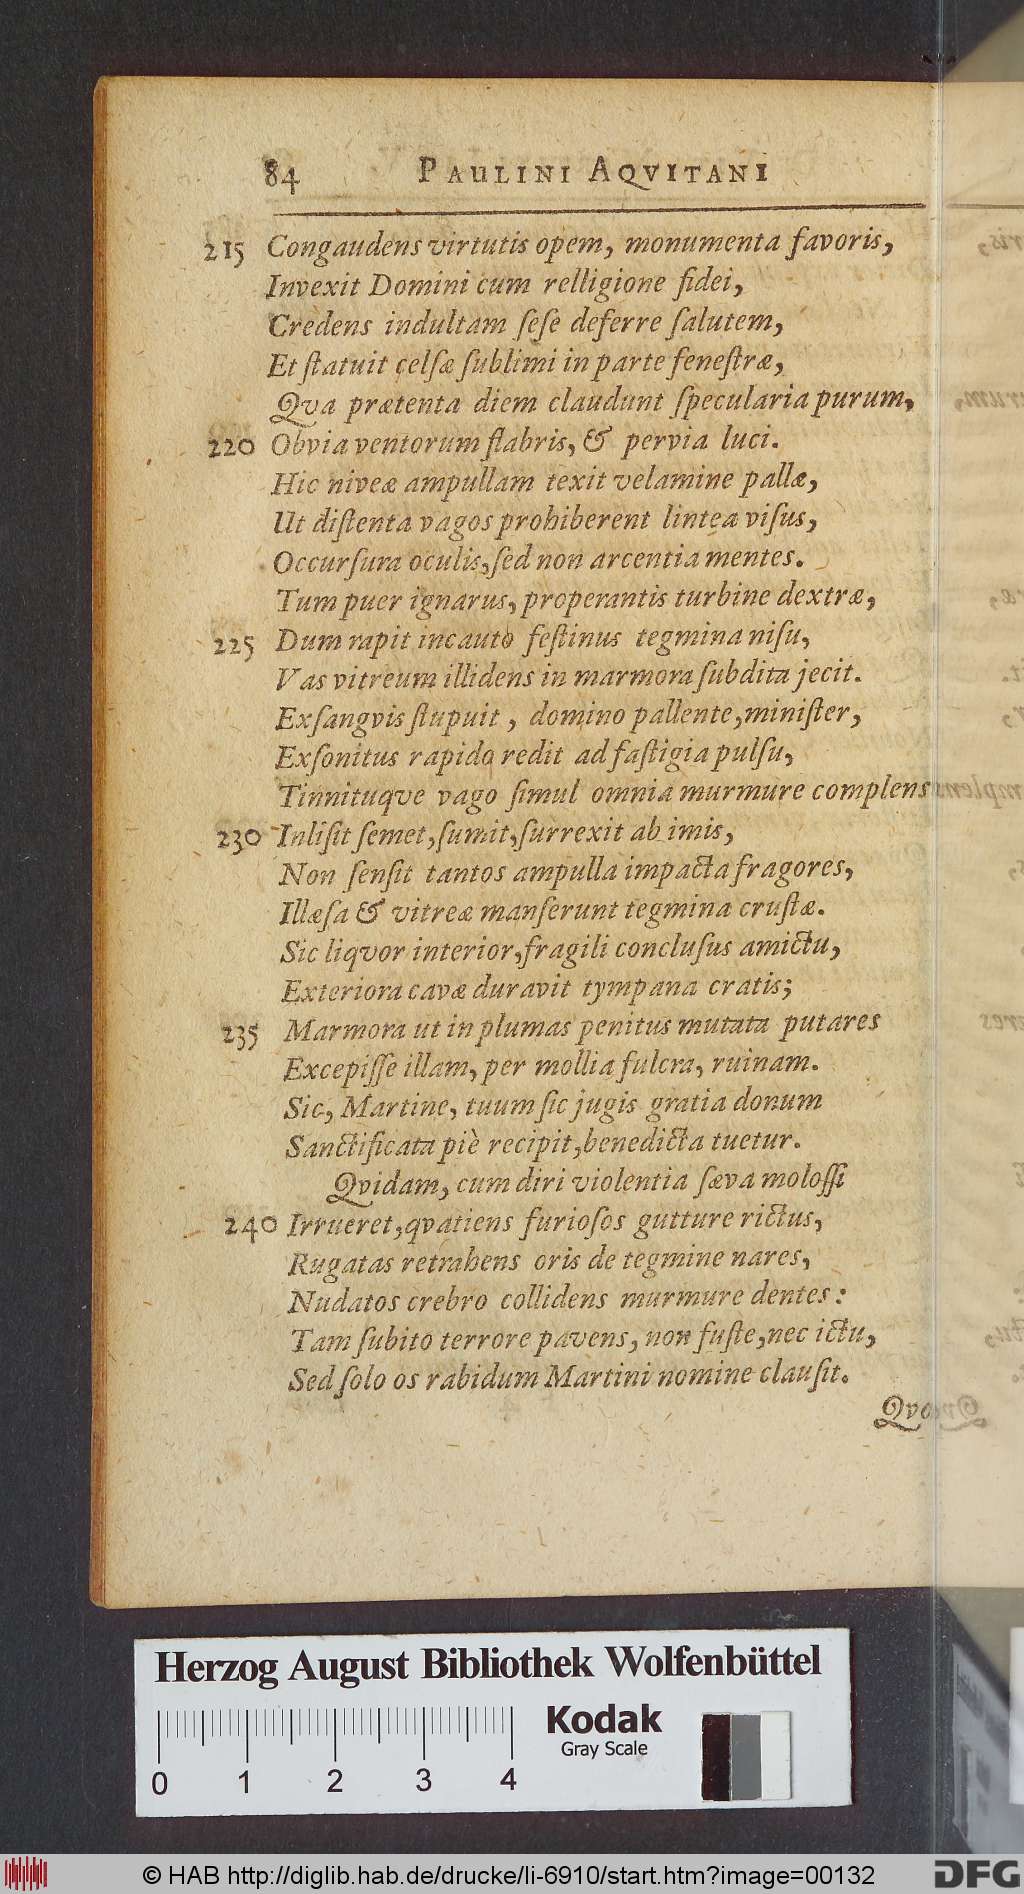 84 PAULINI AQVITANI
215 Congaudens virtutis opem, monumenta favoris,
Invexit Domini cum relligione fidei,
Credens indultam ſeſe deferre ſalutem,
Et ſtatuit celſæ ſublimi in parte feneſtræ,
Qva prætenta diem claudunt ſpecularia purum,
220 Obvia ventorum flabris, & pervia luci.
Hic niveæ ampullam texit velamine pallæ,
Ut diſtenta vagos prohiberent lintea viſus,
Occurſura oculis, ſed non arcentia mentes.
Tum puer ignarus, properantis turbine dextræ,
225 Dum rapit incauto feſtinus tegmina niſu,
Vas vitreum illidens in marmora ſubdita jecit.
Exſangvis ſtupuit, domino pallente, miniſter,
Exſonitus rapido redit ad faſtigia pulſu,
Tinnituqve vago ſimul omnia murmure complens
230 Inliſit ſemet, ſumit, ſurrexit ab imis,
Non ſenſit tantos ampulla impacta fragores,
Illæſa & vitreæ manſerunt tegmina cruſtæ.
Sic liqvor interior, fragili concluſus amictu,
Exteriora cavæ duravit tympana cratis;
235 Marmora ut in plumas penitus mutata putares
Excepiſſe illam, per mollia fulcra, ruinam.
Sic, Martine, tuum ſic jugis gratia donum
Sanctificata piè recipit, benedicta tuetur.
Qvidam, cum diri violentia ſæva moloſſi
240 Irrueret, qvatiens furioſos gutture rictus,
Rugatas retrahens oris de tegmine nares,
Nudatos crebro collidens murmure dentes:
Tam ſubito terrore pavens, non fuſte, nec ictu,
Sed ſolo os rabidum Martini nomine clauſit.
Herzog August Bibliothek Wolfenbüttel
Kodak
Gray Scale
0 1 2 3 4
© HAB http://diglib.hab.de/drucke/li-6910/start.htm?image=00132
DFG